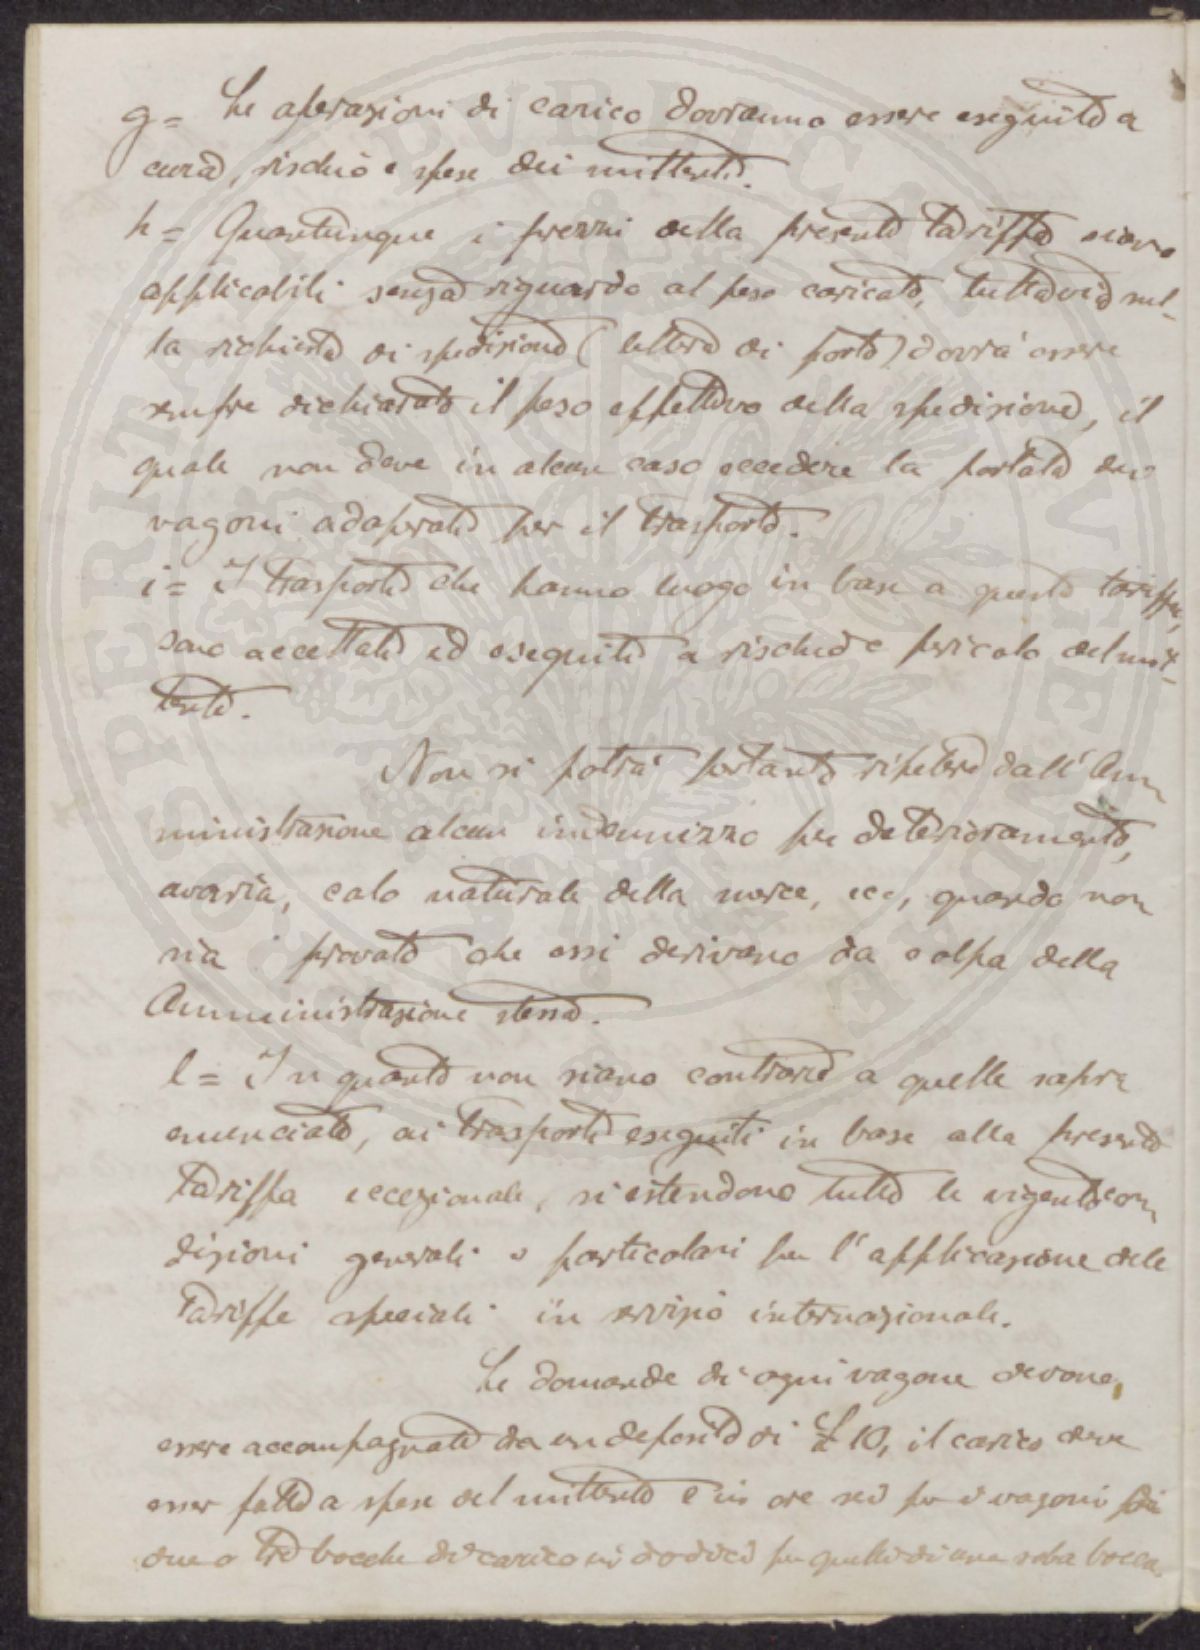 g = Le operazioni di carico dovranno essere eseguite a
cura, rischio e spese dei mittenti.
h = Quantunque i prezzi della presente tariffa siano
applicabili senza riguardo al peso caricato, tuttavia sul-
la richiesta di spedizione (lettera di porto) dovrà essere
sempre dichiarato il peso effettivo della spedizione, il
quale non deve in alcun caso eccedere la portata dei
vagoni adoperati per il trasporto.
i = I trasporti che hanno luogo in base a questa tariffa,
sono accettati ed eseguiti a rischio e pericolo del mit-
tente.
Non si potrà pertanto ripetere dall'Am
ministrazione alcun indennizzo per deterioramento,
avaria, calo naturale della merce, ecc, quando non
sia provato che essi derivano da colpa della
Amministrazione stessa.
l = In quanto non siano contrarie a quelle sopra
enunciate, ai trasporti eseguiti in base alla presente
tariffa eccezionale, si estendono tutte le vigenti con
dizioni generali e particolari per l'applicazione delle
tariffe speciali in servizio internazionale.
Le domande di ogni vagone devono,
essere accompagnate da un deposito di £ 10, il carico deve
esser fatto a spese del mittente e in ore sei per i vagoni
due o tre bocche di carico in dodici per quelli di una sola bocca.